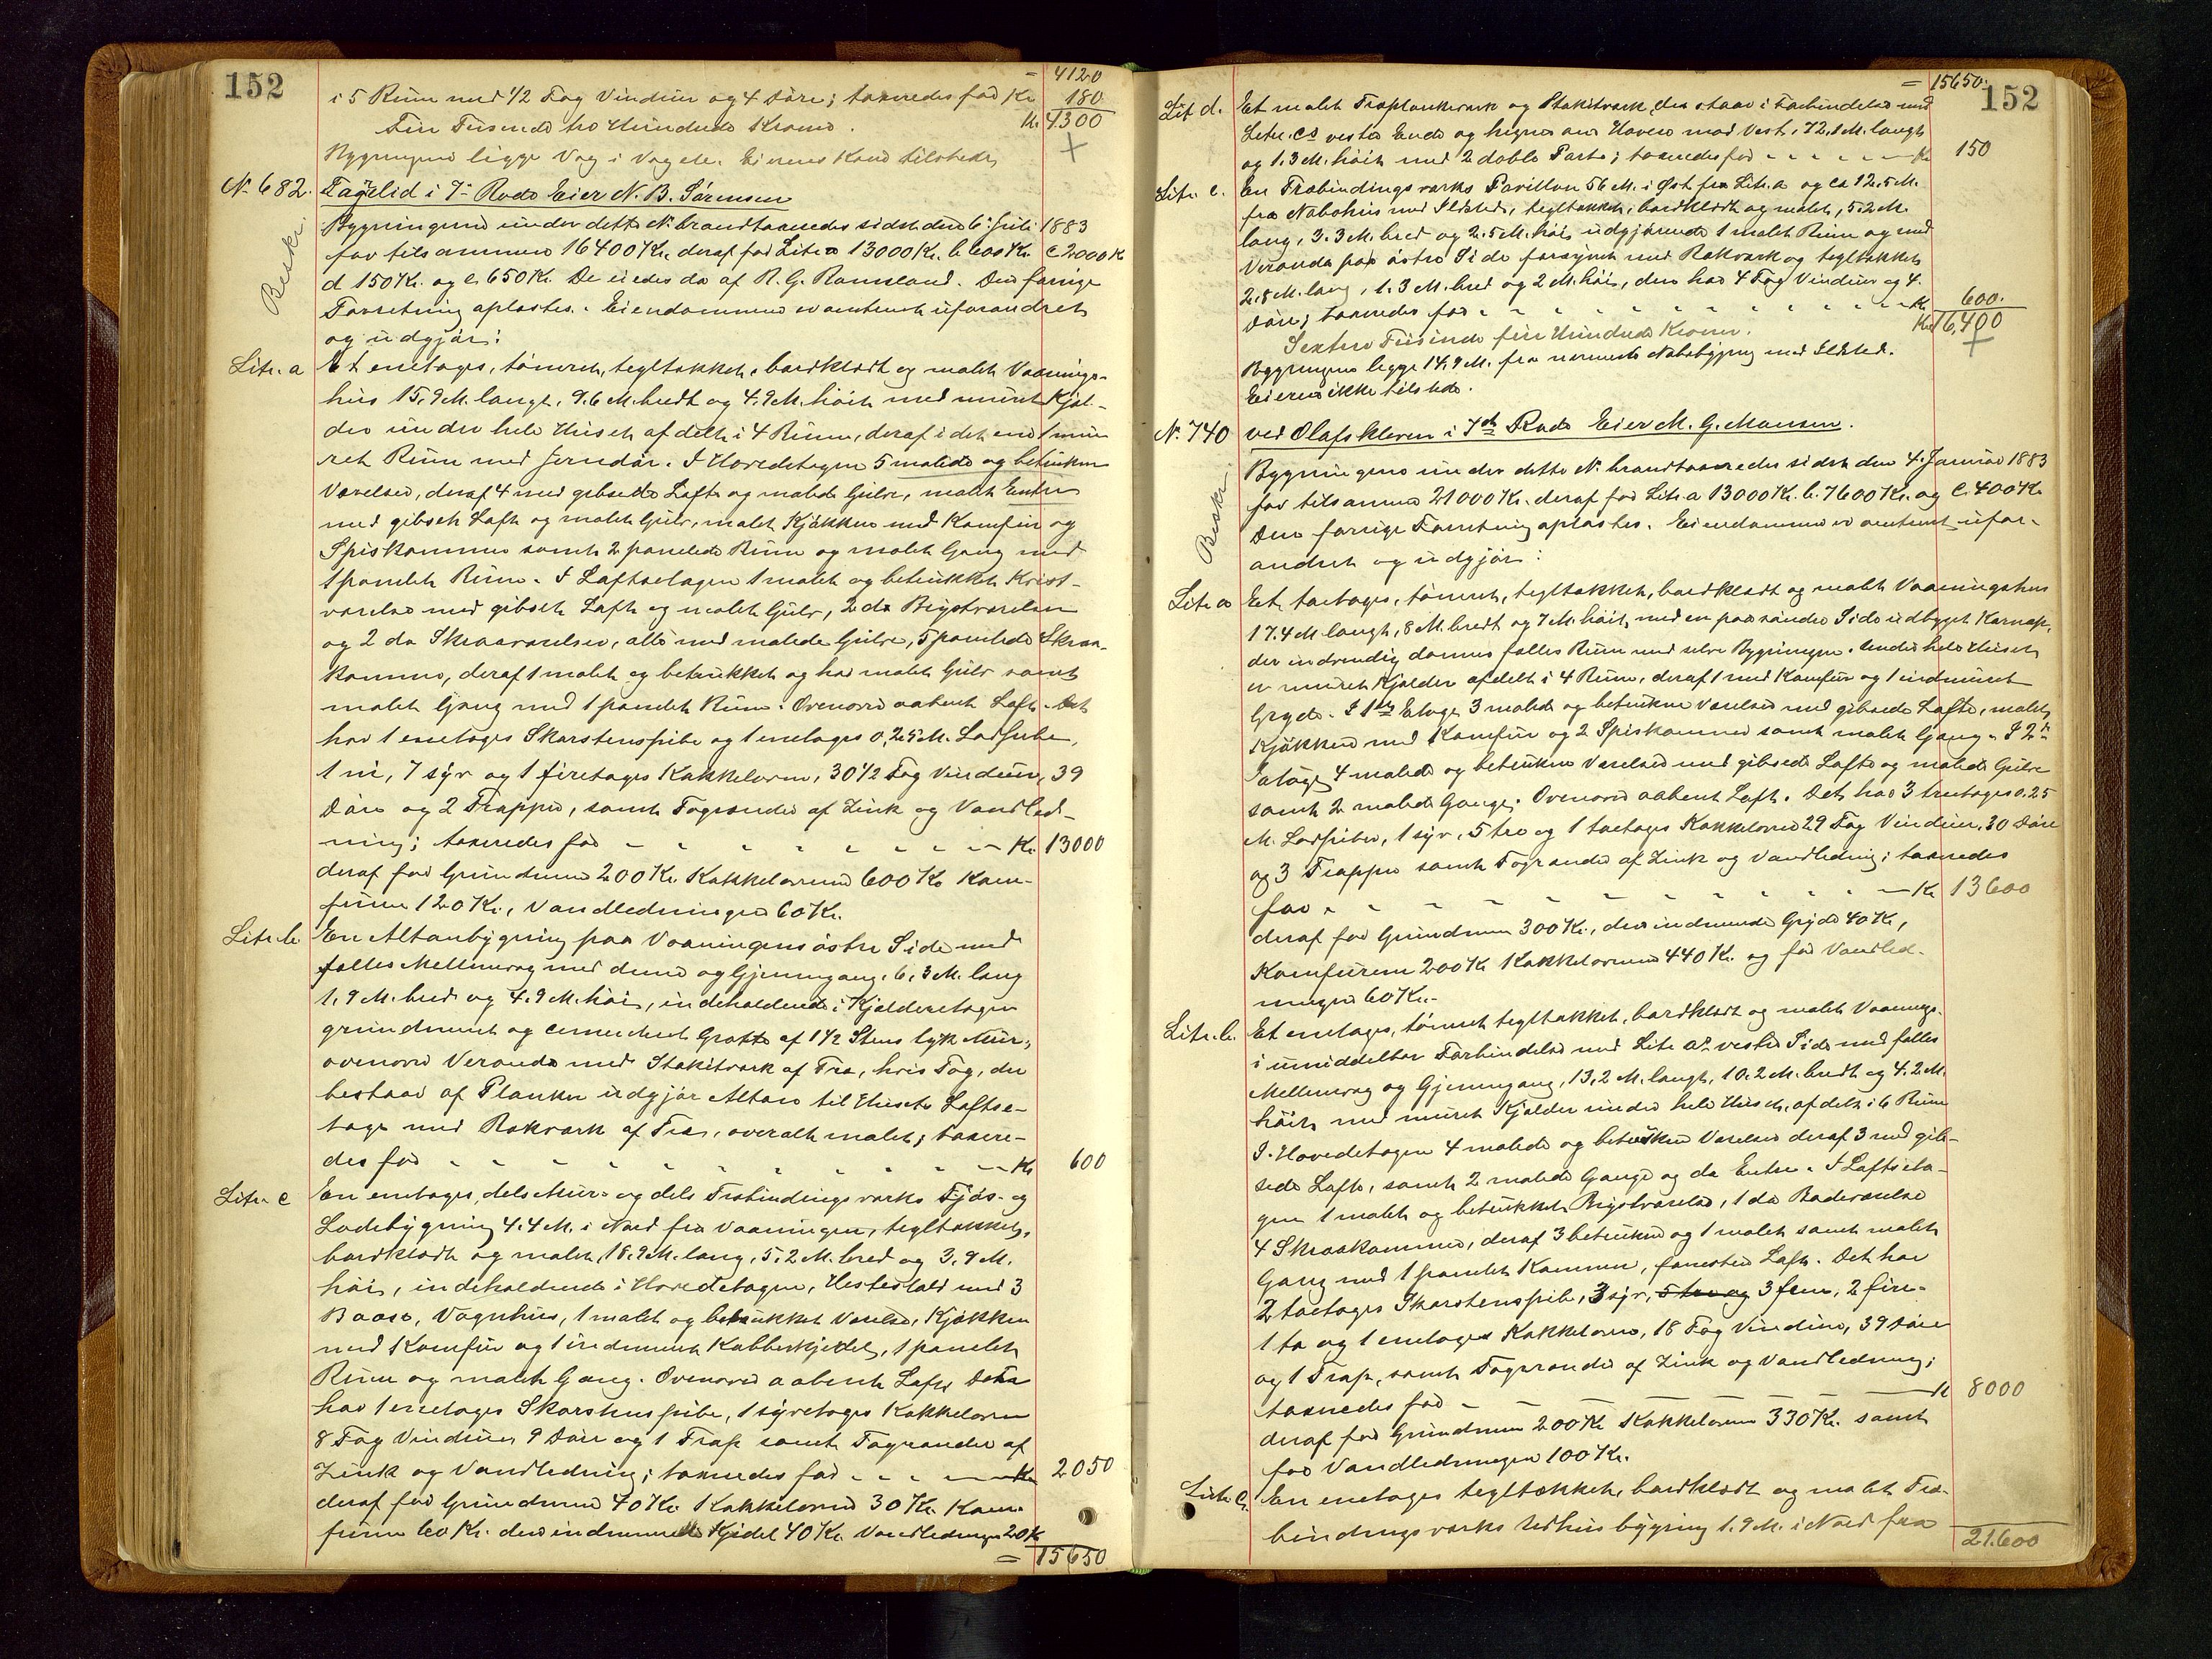 152
= 4120
i 5 Rum med 1/2 Fag Vinduer og 4 Döre; taxeredes for Kr 180
Fire Tusinde tre Hundrede Kroner. Kr. 4300
Bygningerne ligge Væg i Væg etc. Eierens Kone tilstede.
No 682. Fagerlid i 7de Rode Eier N. B. Sörensen
Beskr.
Bygningerne under dette No brandtaxeredes sidst den 6te Juli 1883
for tilsammen 16400 Kr. deraf for Litr a 13000 Kr. b 600 Kr. c 2000 K
d 150 Kr. og e. 650 Kr. De eiedes da af R. G. Ramsland. Den forrige
Forretning oplæstes. Eiendommen er omtrent uforandret
og udgjör:
Litr. a Et enetages, tömret, tegltækket, bordklædt og malet Vaanings-
hus 15,9 M. langt, 9.6 M. bredt og 4.9 M. höit med muret Kjæl-
der under hele Huset afdelt i 4 Rum, deraf i det ene 1 mu-
ret Rum med Jerndör. I Hovedetagen 5 malede og betrukne
Værelser, deraf 4 med gibsede Lofte og malede Gulve, malet Entre
med gibset Loft og malet Gulv, malet Kjökken med Komfur og
Spiskammer samt 2 panelede Rum og malet Gang med
1 panelet Rum. I Loftsetagen 1 malet og betrukket Kvist-
værelse med gibset Loft og malet Gulv, 2 do Brystværelser
og 2 do Skraaværelser, alle med malede Gulve, 5 panelede Skraa-
kammer, deraf 1 malet og betrukket og har malet Gulv samt
malet Gang med 1 panelet Rum. Ovenover aabent Loft. Det
har 1 enetages Skorstenspibe og 1 enetages 0,25 M. Lodpibe,
1 ni, 7 syv og 1 firetages Kakkelovn, 30 1/2 Fag Vinduer, 39
Döre og 2 Trapper, samt Tagrender af Zink og Vandled-
ning; taxeredes for - - - - - - - Kr. 13000
deraf for Grundmuren 200 Kr. Kakkelovnene 600 Kr Kom-
furene 120 Kr., Vandledningen 60 Kr.
Litr. b En Altanbygning paa Vaaningens östre Side med
fælles Mellemvæg med denne og Gjennemgang. 6,3 M. lang
1,9 M. bred og 4.9 M. höi, indeholdende i Kjælderetagen
grundmuret og cementeret Grotte af 1 1/2 Stens tyk Mur,
ovenover Veranda med Stakitværk af Træ, hvis Tag, der
bestaar af Planker udgjör Altan til Husets Loftse-
tage med Rækværk af Træ, overalt malet; taxere-
des for - - - - - - - - - Kr 600
Litr. c En enetages, dels Mur- og dels Træbindingsværks Fjös- og
Ladebygning 4.4 M. i Nord fra Vaaningen, tegltækket,
bordklædt og malet, 18,9 M. lang, 5,2 M. bred og 3,9 M.
höi, indeholdende i Hovedetagen, Hestestald med 3
Baase, Vognhus, 1 malet og betrukket Værelse, Kjökken
med Komfur og 1 indmuret Kobberkjedel, 1 panelet
Rum og malet Gang. Ovenover aabent Loft. Dette
har 1 enetages Skorstenspibe, 1 syvetages Kakkelovn
8 Fag Vinduer 9 Döre og 1 Trap samt Tagrender af
Zink og Vandledning; taxeredes for - - - - Kr 2050
deraf for Grundmuren 40 Kr. Kakkelovnen 30 Kr. Kom-
furen 60 Kr. den indmurede Kjedel 40 Kr. Vandledningen 20 K
= 15650
152
= 15650.
Lit d. Et malet Træplankeværk og Stakitværk, der staar i Forbindelse med
Litr. cs vestre Ende og hegner om Haven mod Vest, 72,1 M. langt
og 1.3 M. höit med 2 doble Porte; taxeredes for - - - - - Kr 150
Litr. e. En Træbindingsværks Pavillon 56 M. i Öst fra Litr. a og ca 12.5 M.
fra Nabohus med Ildsted, tegltækket, bordklædt og malet, 5.2 M.
lang, 3.3 M. bred og 2.5 M. höi udgjörende 1 malet Rum og med
Veranda paa östre Side forsynet med Rækværk og tegltækket
2.8 M. lang, 1.3 M. bred og 2 M. höi, den har 4 Fag Vinduer og 4
Döre; taxeredes for - - - - - - - - - Kr. 600.
Sexten Tusinde fire Hundrede Kroner. Kr. 16,400
Bygningerne ligge 14,9 M. fra nærmeste Nabobygning med Ildsted.
Eieren ikke tilstede.
No. 740 ved Olafskleven i 7de Rode Eier M. G. Monsen.
Beskr.
Bygningerne under dette No. brandtaxeredes sidst den 4. Januar 1883
for tilsammen 21000 Kr. deraf for Litr. a 13000 Kr. b. 7600 Kr. og c. 400 Kr
Den forrige Forretning oplæstes. Eiendommen er omtrent ufor-
andret og udgjör:
Litr. a Et toetages, tömret, tegltækket, bordklædt og malet Vaaningshus
17.4 M. langt, 8 M. bredt og 7 M. höit, med en paa söndre Side udbygget Karnap,
der indvendig danner fælles Rum med selve Bygningen. Under hele Huset
er muret Kjælder afdelt i 4 Rum, deraf 1 med Komfur og 1 indmuret
Gryde. I 1ste Etage 3 malede og betrukne Værelser med gibsede Lofte, malet
Kjökken med Komfur og 2 Spiskammer samt malet Gang. I 2de
Etage 4 malede og betrukne Værelser med gibsede Lofte og malede Gulve
samt 2 malede Gange. Ovenover aabent Loft. Det har 3 treetages 0.25
M. Lodpiber, 1 syv, 5 tre og 1 toetages Kakkelovne 29 Fag Vinduer, 30 Döre
og 3 Trapper samt Tagrender af Zink og Vandledning; taxeredes
for - - - - - - - - - - Kr 13600
deraf for Grundmuren 300 Kr., den indmurede Gryde 40 Kr.,
Komfurerne 200 Kr Kakkelovnene 440 Kr. og for Vandled-
ningen 60 Kr.
Litr. b. Et enetages, tömret tegltækket, bordklædt og malet Vaanings-
i umiddelbar Forbindelse med Litr as vestre Side med fælles
Mellemvæg og Gjennemgang, 13,2 M. langt, 10.2 M. bredt og 4.2 M.
höit, med muret Kjælder under hele Huset, afdelt i 6 Rum
I Hovedetagen 4 malede og betrukne Værelser deraf 3 med gib-
sede Lofte, samt 2 malede Gange og do Entre. I Loftseta-
gen 1 malet og betrukket Brystværelse, 1 do Badeværelse
4 Skraakammer, deraf 3 betrukne og 1 malet samt malet
Gang med 1 panelet Kammer, forresten Loft. Det har
2 toetages Skorstenspibe, 3 syv, 5 tre og 3 fem, 2 fire-
1 to og 1 enetages Kakkelovne, 18 Fag Vinduer, 39 Döre
og 1 Trap, samt Tagrender af Zink og Vandledning;
taxeredes for - - - - - - - Kr 8000
deraf for Grundmuren 200 Kr Kakkelovnene 330 Kr. samt
for Vandledningen 100 Kr.
Litr. c. En enetages tegltækket, bordklædt og malet Træ-
bindingsværks Udhusbygning 1.9 M. i Nord fra
21.600